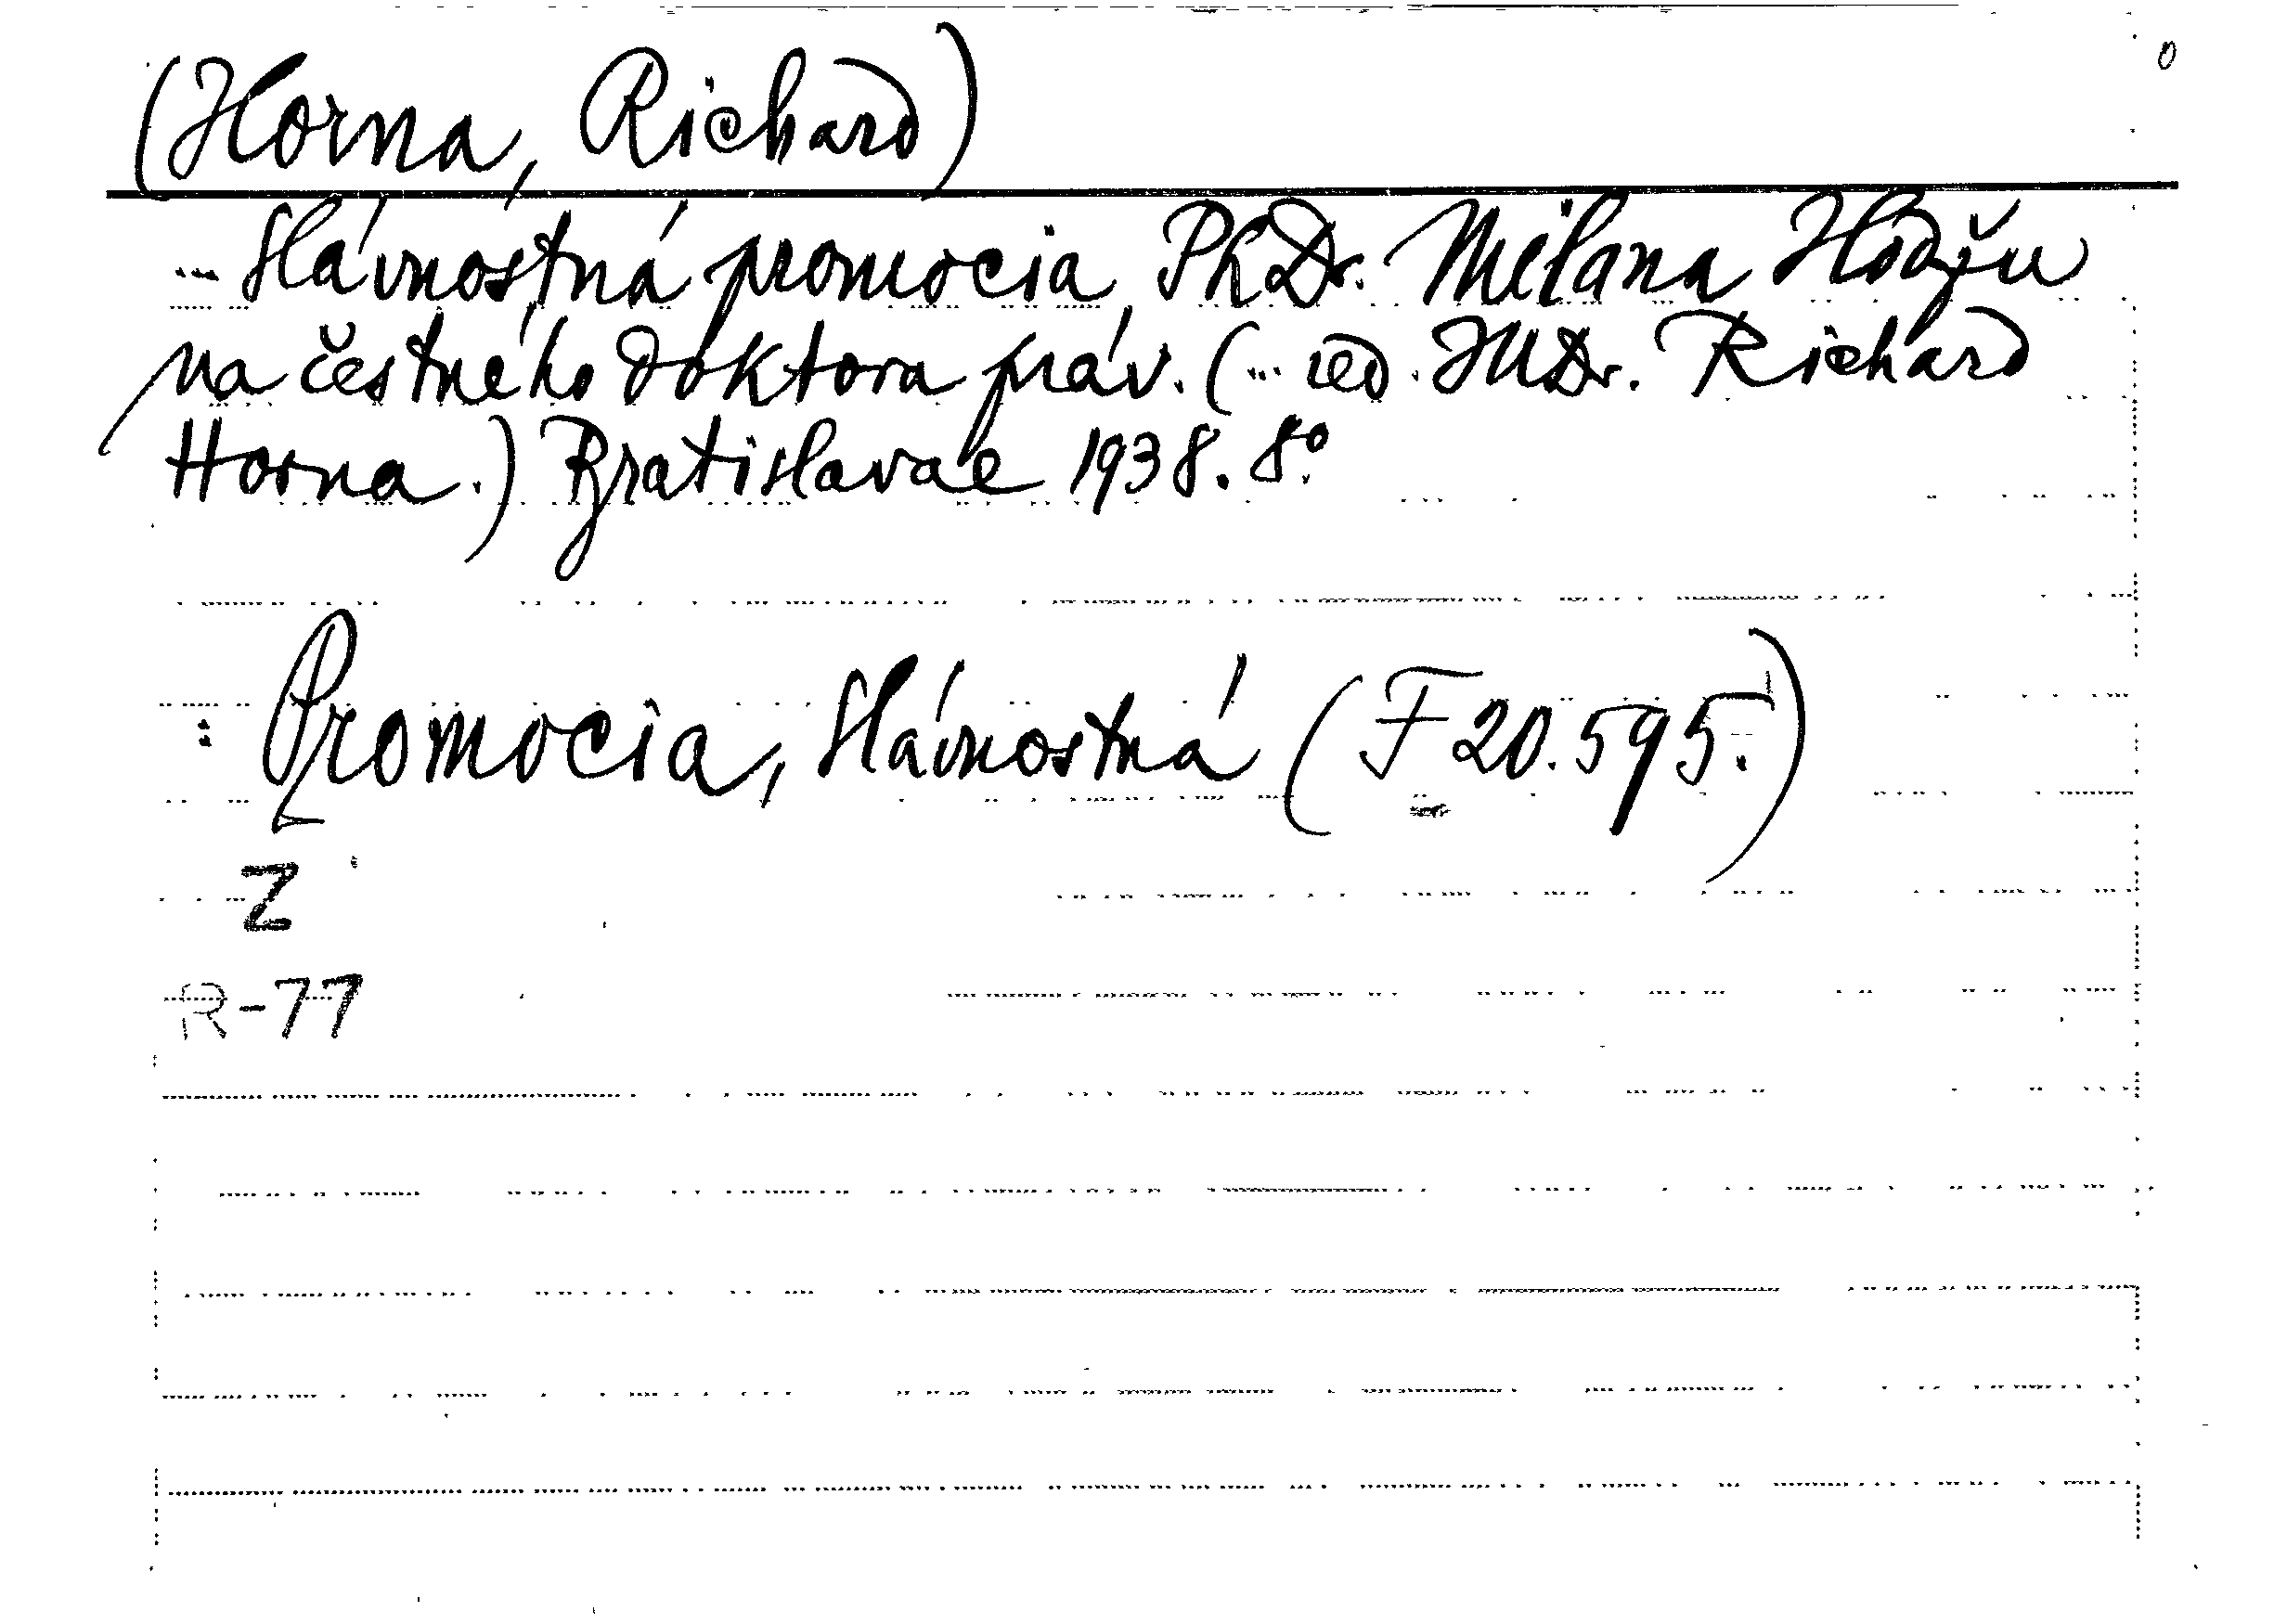 (Horna, Richard)
... Slávnostná promocia PhDr. Milana Hodžu
na čestného doktora práv. (... red. JUDr. Richard
Horna.) Bratislavae 1938. 8°.
: Promocia, Slávnostná (F 20.595.)
Z
R-77